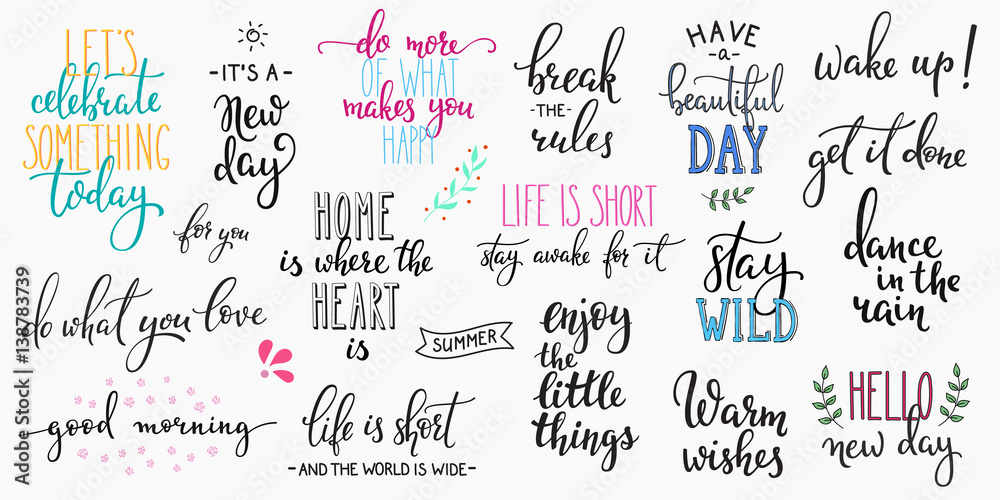 LET'S
celebrate
SOMETHING
today
-IT'S A-
New
day
do more
OF WHAT
makes you
HAPPY
break
-THE-
rules
HAVE
-a-
beautiful
DAY
wake up!
get it done
for you
HOME
is where the
HEART
is
LIFE IS SHORT
stay awake for it
stay
WILD
dance
in the
rain
do what you love
SUMMER
enjoy
the
little
things
good morning
life is short
-AND THE WORLD IS WIDE-
Warm
wishes
HELLO
new day
Adobe Stock | #138783739